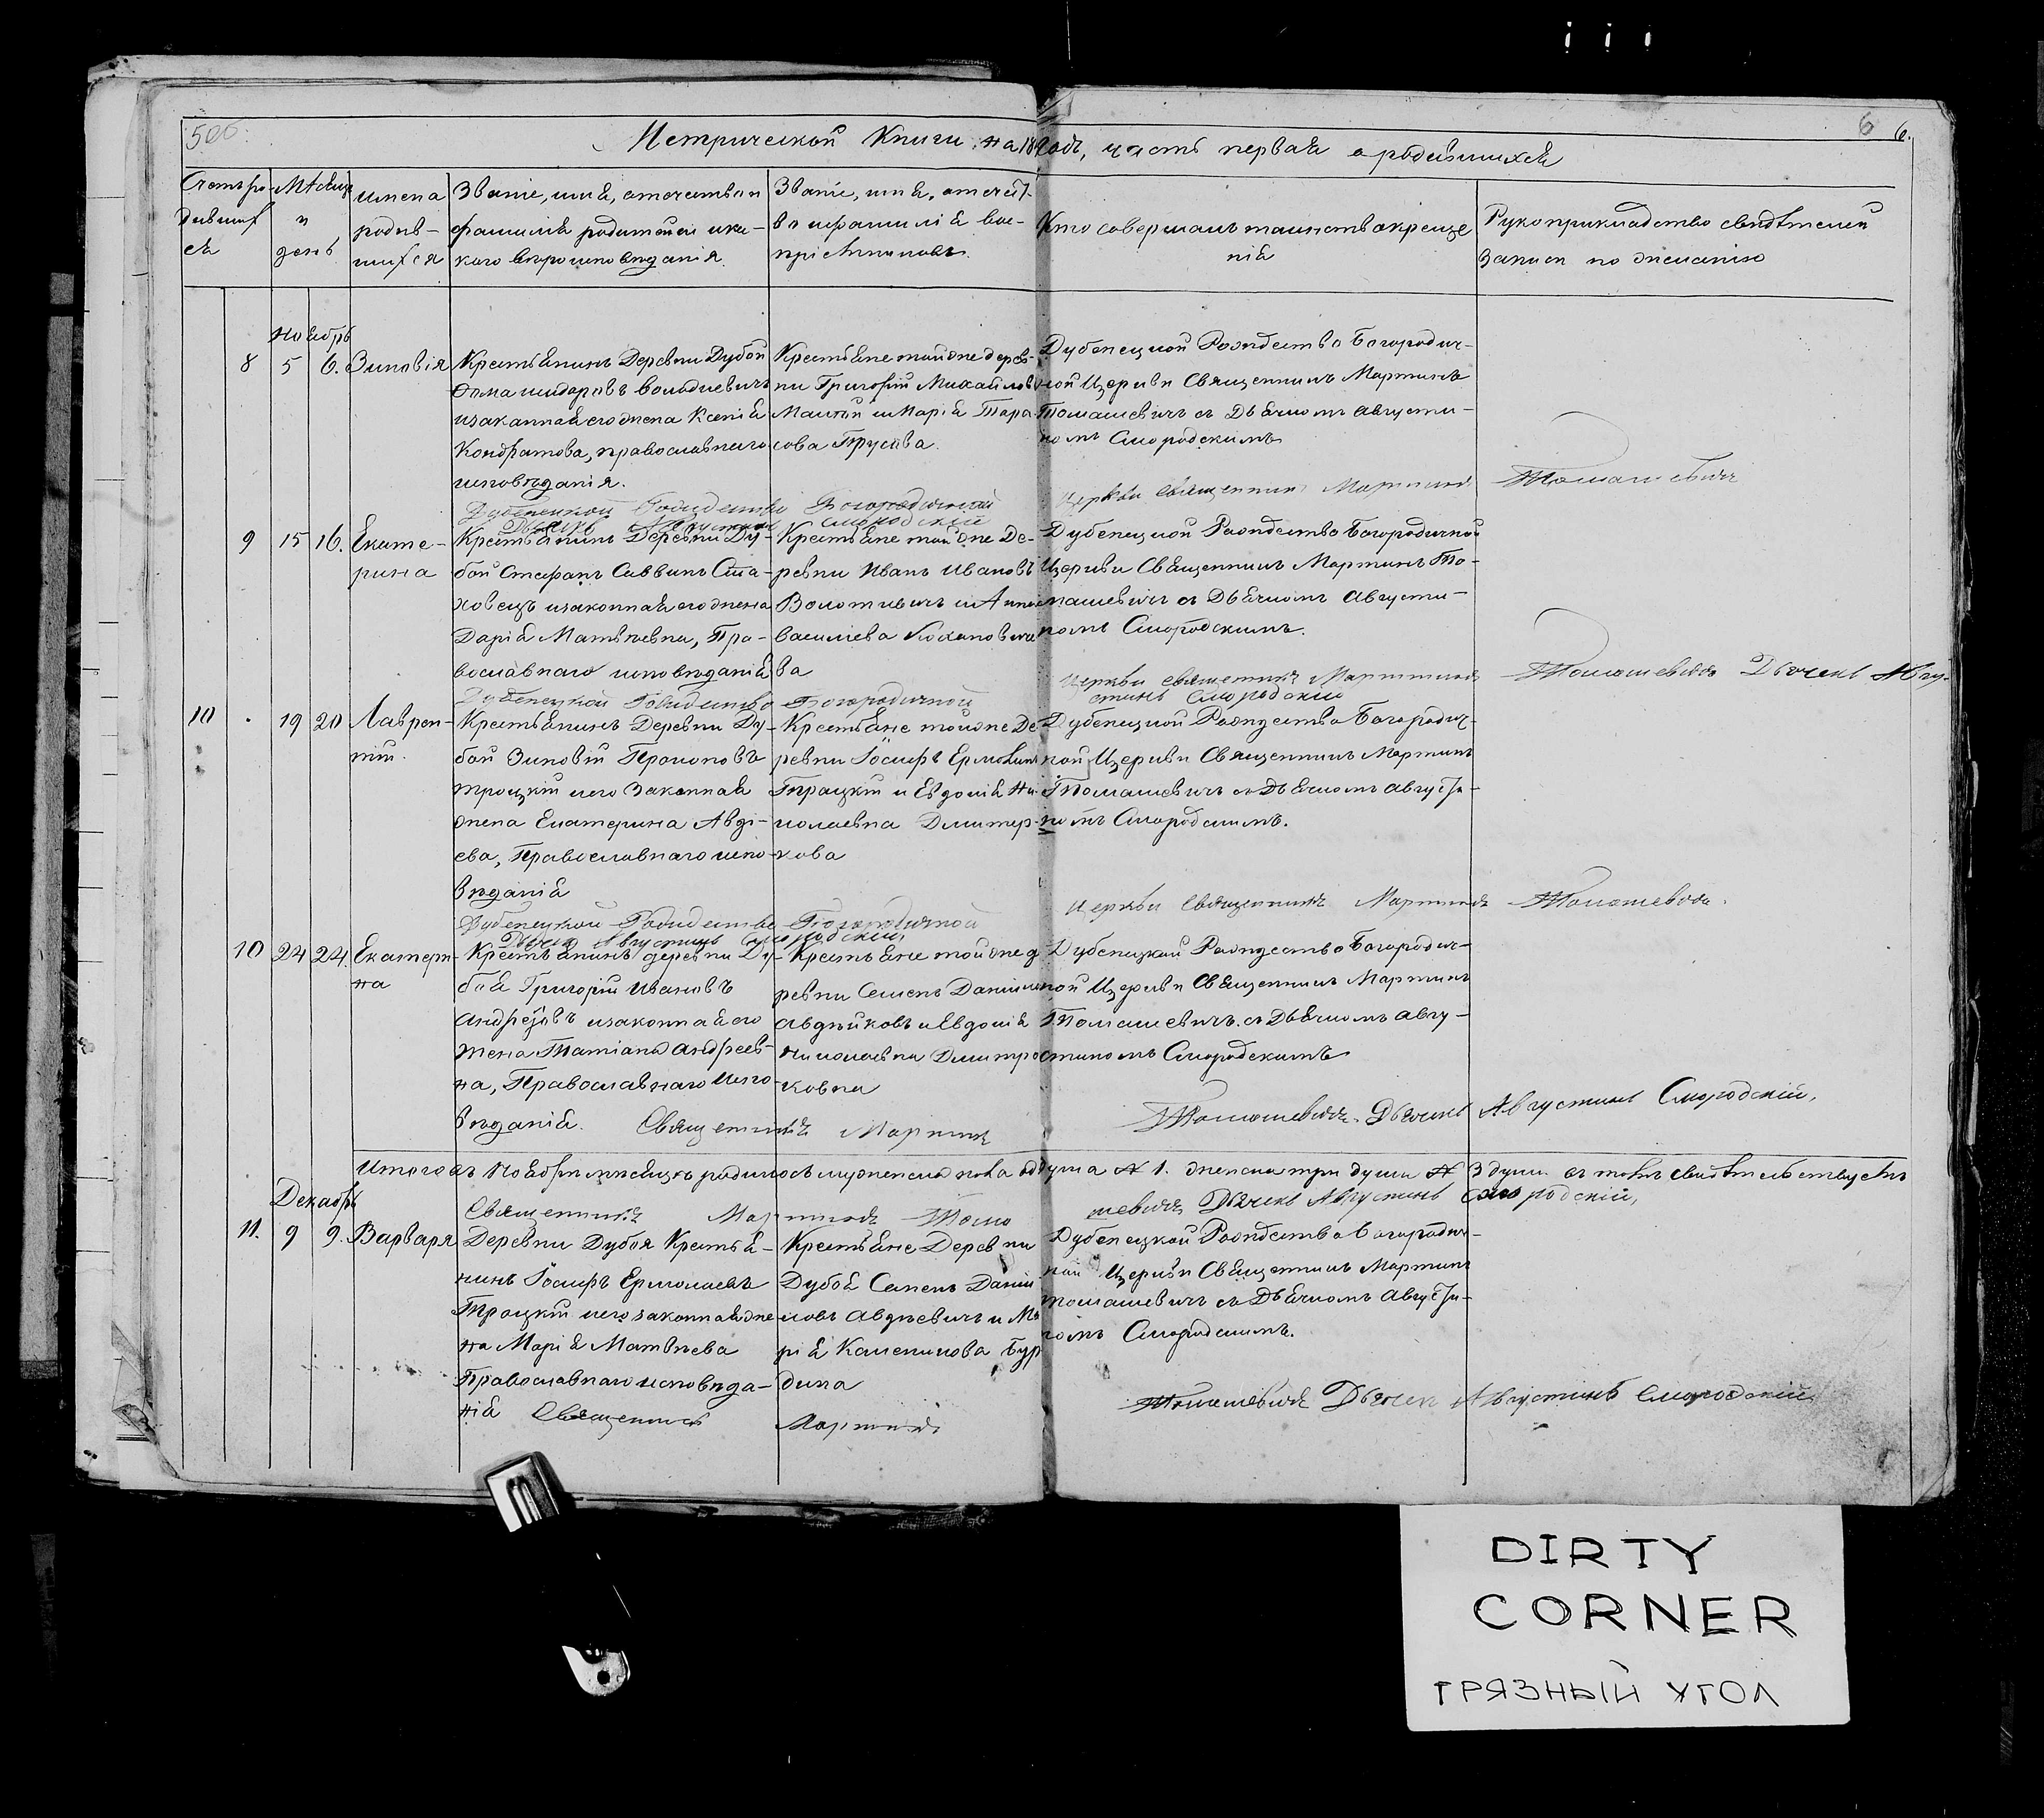 5об.
Метрической Книги на 18 годъ, часть первая о родившихся
6 6.
Счетъ ро-
дивших
ся
Мѣсяцъ
и
день
имена
родив-
шихся
Званіе, имя, отчество и
фамилія родителей и ка-
кого вѣроисповѣданія.
Званіе, имя, отчест-
во и фамилія вос-
пріемниковъ.
Кто совершалъ таинство креще
нія
Рукоприкладство свидѣтелей
записи по желанію
Ноябрь
8 5 6. Зиновія
Крестьянинъ Деревни Дубой
Фома
и законная его жена Ксенія
Кондратова, православнаго
исповѣданія.
Крестьяне тойже дерев-
ни Григорій Михайловъ
и Марія Тара-
сова Трусова
Дубенецкой Рождество Богородич-
ной Церкви Священникъ Мартинъ
Томашевичъ съ Дьячкомъ Августи-
номъ Смородскимъ
Дубенецкой Рождество Богородичной
Церкви Священникъ Мартинъ Томашевичъ
Дьячекъ Августинъ Смородскій
9 15 16. Екате-
рина
Крестьянинъ Деревни Ду-
бой Стефанъ Саввинъ Ста-
ховецъ и законная его жена
Дарія Матвѣевна, Пра-
вославнаго исповѣданія
Крестьяне тойже Де-
ревни Иванъ Ивановъ
и Анна
Василіева
ва
Дубенецкой Рождество Богородичной
Церкви Священникъ Мартинъ То-
машевичъ съ Дьячкомъ Августи-
номъ Смородскимъ.
Дубенецкой Рождество Богородичной
Церкви священникъ Мартинъ Томашевичъ Дьячекъ Авгу-
стинъ Смородскій
10 19 20 Лаврен-
тій.
Крестьянинъ Деревни Ду-
бой Зиновій Прокоповъ
Троцкій и его законная
жена Екатерина Авді-
ева, Православнаго испо-
вѣданія
Крестьяне тойже Де
ревни Іосифъ Ермолаевъ
Трацкій и Евдокія Ни
колаевна Дмитер-
кова
Дубенецкой Рождество Богородич-
ной Церкви Священникъ Мартинъ
Томашевичъ съ Дьячкомъ Августи-
номъ Смородскимъ.
Дубенецкой Рождество Богородичной
Церкви Священникъ Мартинъ Томашевичъ.
Дьячекъ Августинъ Смородскій,
10 24 24. Екатери-
на
Крестьянинъ деревни Ду-
боя Григорій Ивановъ
и законная его
жена Татіана Андреев-
на, Православнаго испо-
вѣданія.
Крестьяне тойже д
ревни Семенъ Даніило
и Евдокія
Николаевна Дмитро
ковна
Дубенецкой Рождество Богородич-
ной Церкви Священникъ Мартинъ
Томашевичъ съ Дьячкомъ Авгу-
стиномъ Смородскимъ
Священникъ Мартинъ Томашевичъ. Дьячекъ Августинъ Смородскій,
Итого въ Ноябрѣ мѣсяцѣ родилось мужеска пола одна душа № 1. женска три души № 3 души. въ томъ свидѣтельствуемъ
Священникъ Мартинъ Томашевичъ Дьячекъ Августинъ Смородскій,
Декабрь
11. 9 9. Варвара
Деревни Дубоя Крестья-
нинъ Іосифъ Ермолаевъ
Троцкій и его законная же
на Марія Матвѣева
Православнаго исповѣда-
нія
Крестьяне Деревни
Дубоя Семенъ Дани
ловъ Авдѣевичъ и Ма
рія
дина
Дубенецкой Рождество Богородич-
ной Церкви Священникъ Мартинъ
Томашевичъ съ Дьячкомъ Августи-
номъ Смородскимъ.
Священникъ Мартинъ Томашевичъ Дьячекъ Августинъ Смородскій
DIRTY
CORNER
ГРЯЗНЫЙ УГОЛ